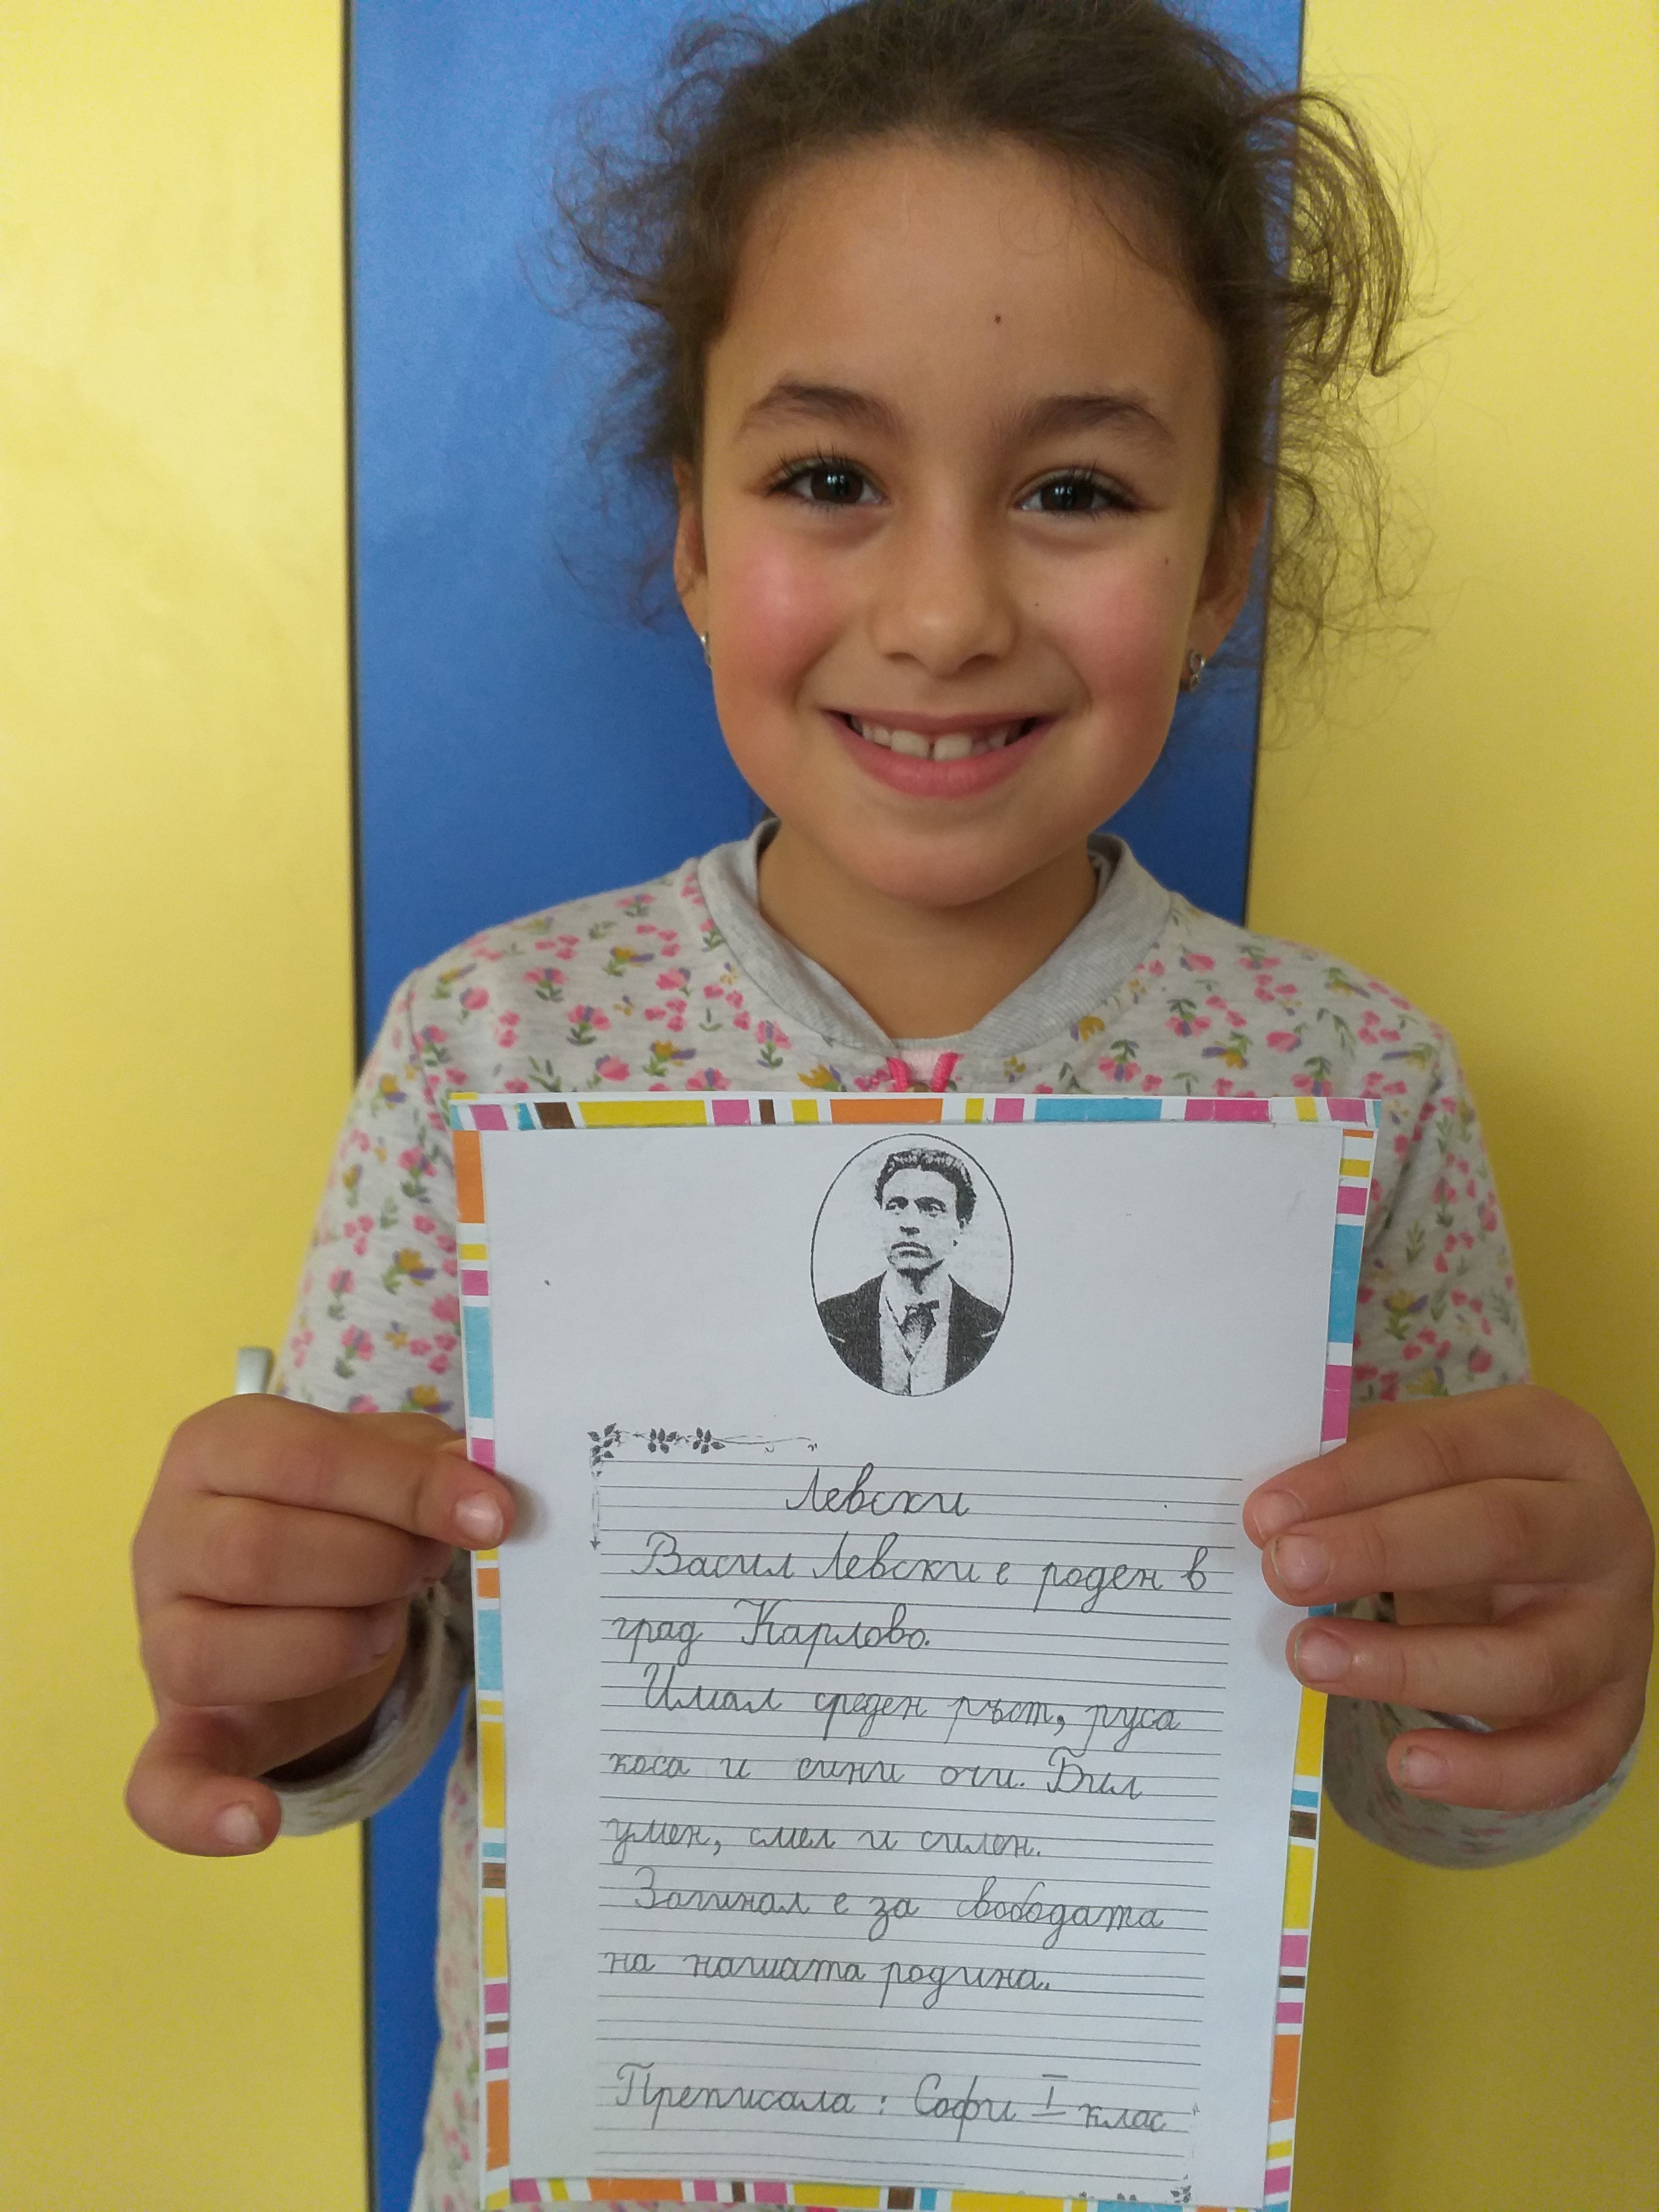 Левски
Васил Левски е роден в
град Карлово.
Имал среден ръст, руса
коса и сини очи. Бил
умен, смел и силен.
Загинал е за свободата
на нашата родина.
Преписала: Софи I клас